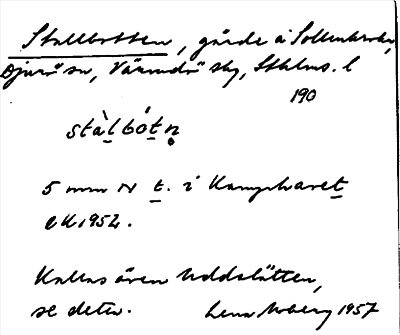 Stallbotten, gärde å Sollenkroka,
Djurö sn, Värmdö skg, Sthlms. l
190
stàl bótn̥
5 mm N t. i Kamphavet
EK 1952.
Kallas även Uddslätten,
se detta. Lena Moberg 1957